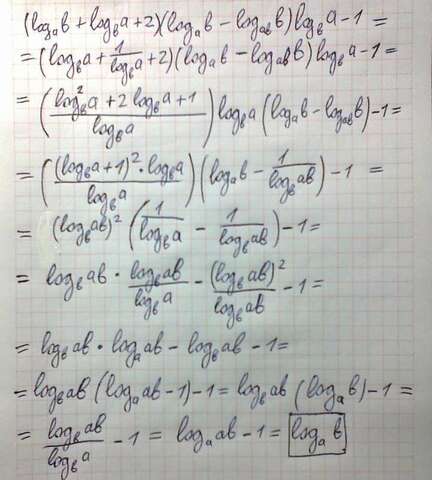 (log_a b + log_b a + 2)(log_a b − log_ab b) log_b a − 1 =
= (log_b a + 1/log_b a + 2)(log_a b − log_ab b) log_b a − 1 =
= ((log_b² a + 2 log_b a + 1)/log_b a) log_b a (log_a b − log_ab b) − 1 =
= (((log_b a + 1)² • log_b a)/log_b a)(log_a b − 1/log_b ab) − 1 =
= (log_b ab)² (1/log_b a − 1/log_b ab) − 1 =
= log_b ab • log_b ab/log_b a − (log_b ab)²/log_b ab − 1 =
= log_b ab • log_a ab − log_b ab − 1 =
= log_b ab (log_a ab − 1) − 1 = log_b ab (log_a b) − 1 =
= log_b ab/log_b a − 1 = log_a ab − 1 = log_a b